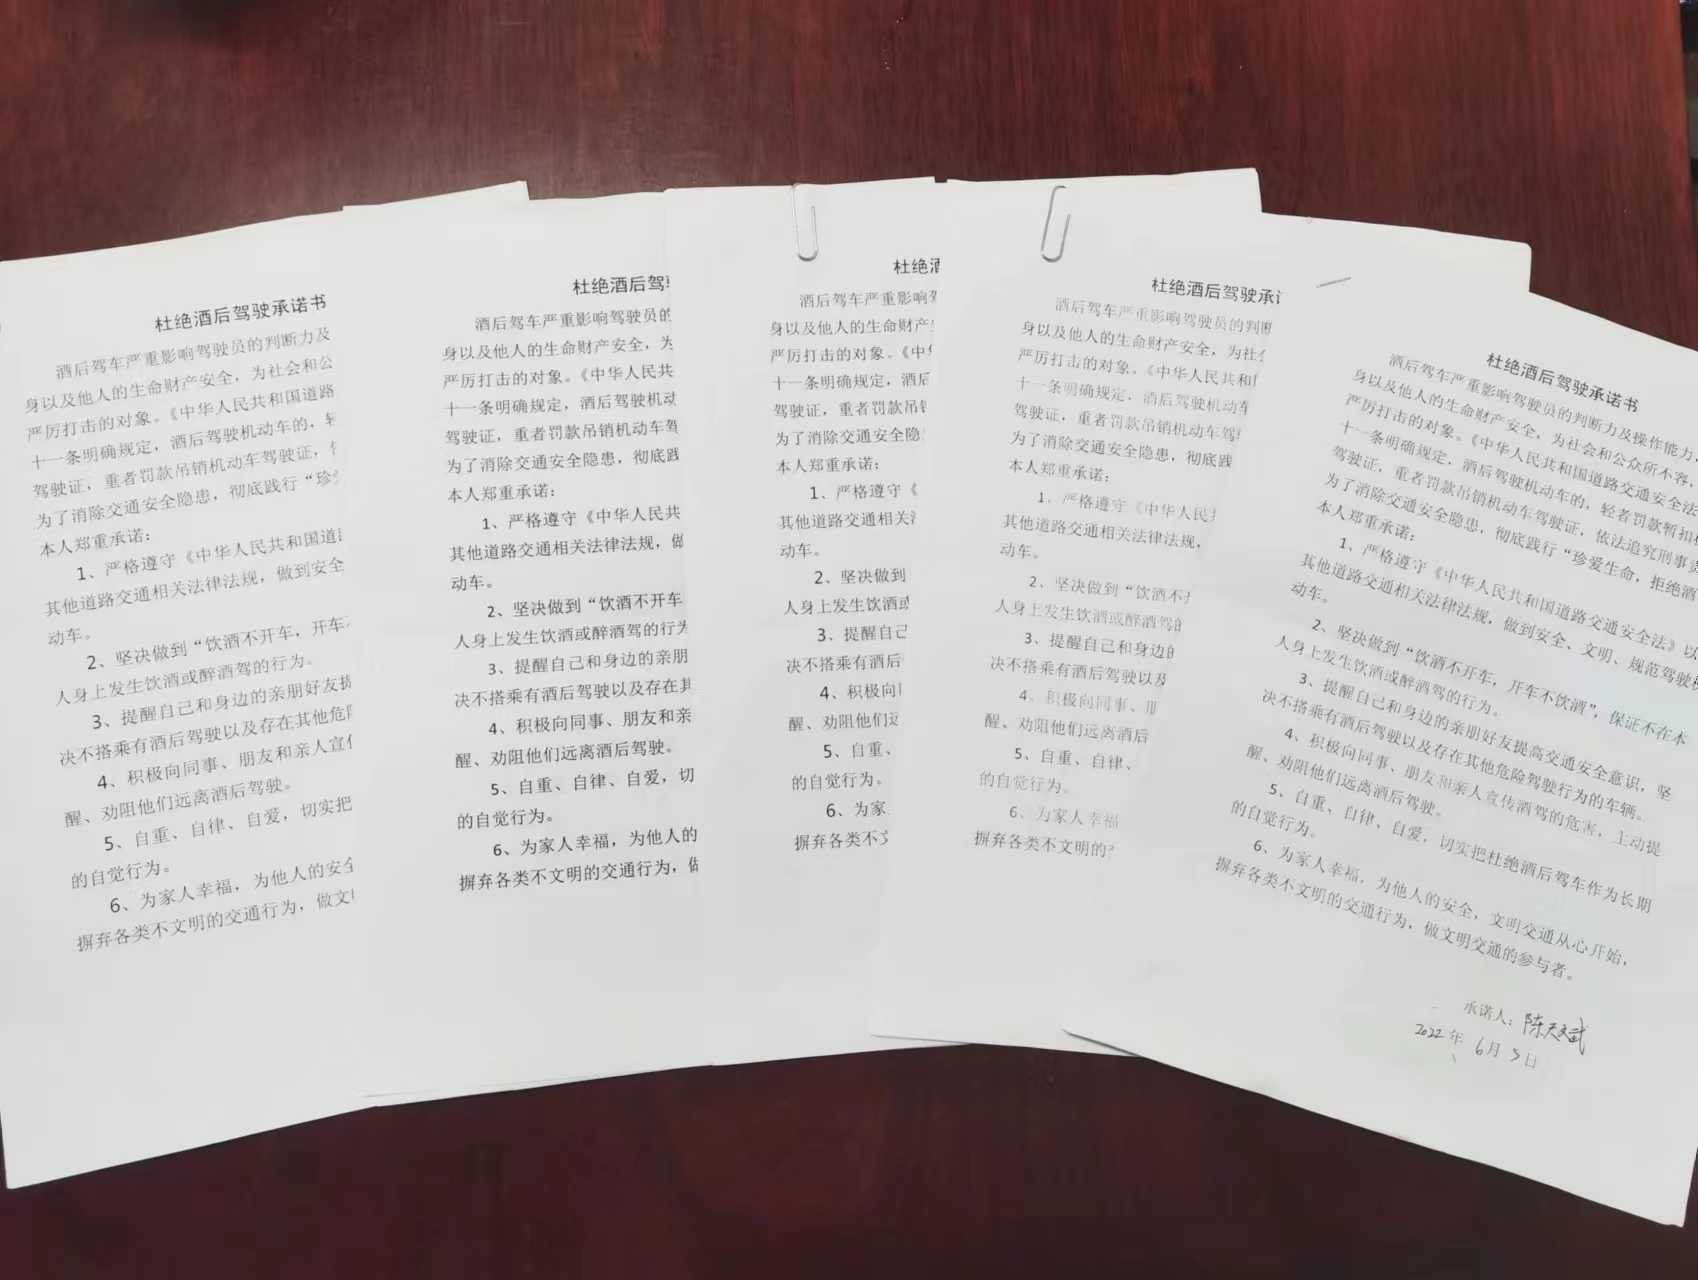 杜绝酒后驾驶承诺书
酒后驾车严重影响驾驶员的判断力及
身以及他人的生命财产安全，为社会和公
严厉打击的对象。《中华人民共和国道路
十一条明确规定，酒后驾驶机动车的，轻
驾驶证，重者罚款吊销机动车驾驶证，
为了消除交通安全隐患，彻底践行“珍
本人郑重承诺：
1、严格遵守《中华人民共和国道
其他道路交通相关法律法规，做到安全
动车。
2、坚决做到“饮酒不开车，开车
人身上发生饮酒或醉酒驾的行为。
3、提醒自己和身边的亲朋好友提
决不搭乘有酒后驾驶以及存在其他危
4、积极向同事、朋友和亲人宣
醒、劝阻他们远离酒后驾驶。
5、自重、自律、自爱，切实把
的自觉行为。
6、为家人幸福，为他人的安全
摒弃各类不文明的交通行为，做文
杜绝酒后驾
酒后驾车严重影响驾驶员的
身以及他人的生命财产安全，为
严厉打击的对象。《中华人民共
十一条明确规定，酒后驾驶机动
驾驶证，重者罚款吊销机动车驾
为了消除交通安全隐患，彻底践
本人郑重承诺：
1、严格遵守《中华人民共
其他道路交通相关法律法规，做
动车。
2、坚决做到“饮酒不开车
人身上发生饮酒或醉酒驾的行为
3、提醒自己和身边的亲朋
决不搭乘有酒后驾驶以及存在其
4、积极向同事、朋友和亲
醒、劝阻他们远离酒后驾驶。
5、自重、自律、自爱，切
的自觉行为。
6、为家人幸福，为他人的
摒弃各类不文明的交通行为，做
杜绝酒
酒后驾车严重影响
身以及他人的生命财产
严厉打击的对象。《中
十一条明确规定，酒后
驾驶证，重者罚款吊销
为了消除交通安全隐
本人郑重承诺：
1、严格遵守《
其他道路交通相关
动车。
2、坚决做到
人身上发生饮酒或
3、提醒自己
决不搭乘有酒后
4、积极向
醒、劝阻他们远
5、自重、
的自觉行为。
6、为家
摒弃各类不文
杜绝酒后驾驶承
酒后驾车严重影响驾驶员的判断
身以及他人的生命财产安全，为社会
严厉打击的对象。《中华人民共和
十一条明确规定，酒后驾驶机动车
驾驶证，重者罚款吊销机动车驾
为了消除交通安全隐患，彻底践
本人郑重承诺：
1、严格遵守《中华人民
其他道路交通相关法律法规，
动车。
2、坚决做到“饮酒不
人身上发生饮酒或醉酒驾的
3、提醒自己和身边的
决不搭乘有酒后驾驶以及
4、积极向同事、朋
醒、劝阻他们远离酒后
5、自重、自律、
的自觉行为。
6、为家人幸福
摒弃各类不文明的
杜绝酒后驾驶承诺书
酒后驾车严重影响驾驶员的判断力及操作能力，
身以及他人的生命财产安全，为社会和公众所不容，
严厉打击的对象。《中华人民共和国道路交通安全法
十一条明确规定，酒后驾驶机动车的，轻者罚款暂扣
驾驶证，重者罚款吊销机动车驾驶证，依法追究刑事责
为了消除交通安全隐患，彻底践行“珍爱生命，拒绝酒
本人郑重承诺：
1、严格遵守《中华人民共和国道路交通安全法》以
其他道路交通相关法律法规，做到安全、文明、规范驾驶机
动车。
2、坚决做到“饮酒不开车，开车不饮酒”，保证不在本
人身上发生饮酒或醉酒驾的行为。
3、提醒自己和身边的亲朋好友提高交通安全意识，坚
决不搭乘有酒后驾驶以及存在其他危险驾驶行为的车辆。
4、积极向同事、朋友和亲人宣传酒驾的危害，主动提
醒、劝阻他们远离酒后驾驶。
5、自重、自律、自爱，切实把杜绝酒后驾车作为长期
的自觉行为。
6、为家人幸福，为他人的安全，文明交通从心开始，
摒弃各类不文明的交通行为，做文明交通的参与者。
承诺人：陈天斌
2022年 6月 5日